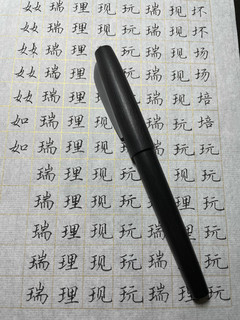 女女瑞理现玩瑞现坏
女女瑞理现玩瑞现坏
女女瑞理现玩瑞现场
女女瑞理现玩瑞现场
女女瑞理现玩瑞现培
如瑞理现瑞玩培
如瑞理现瑞玩玩
瑞理现玩瑞现玩
瑞理现玩现玩
瑞理现玩现玩
瑞理现玩瑞玩
瑞理现玩瑞玩